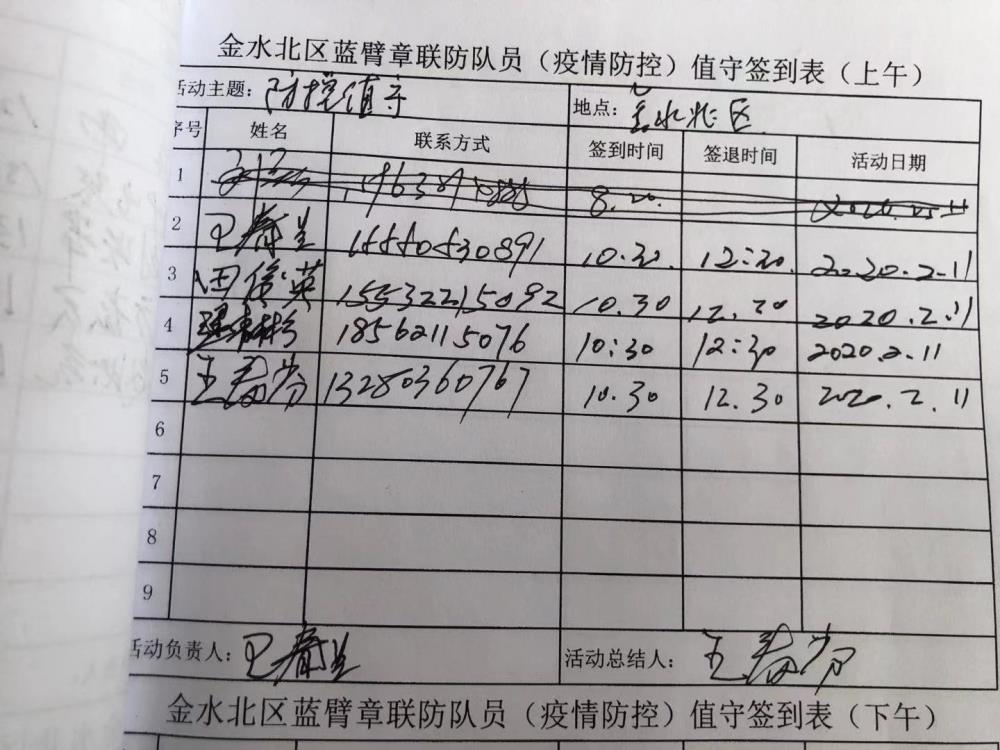 金水北区蓝臂章联防队员（疫情防控）值守签到表（上午）
活动主题：防控值守 地点：金水北区
序号 姓名 联系方式 签到时间 签退时间 活动日期
1 8.20
2 王春兰 15550530891 10.30 12:30 2020.2.11
3 田俊英 15532215092 10.30 12.30 2020.2.11
4 18562115076 10:30 12:30 2020.2.11
5 王春芳 13280360767 10.30 12.30 2020.2.11
6
7
8
9
活动负责人：王春兰 活动总结人：王春芳
金水北区蓝臂章联防队员（疫情防控）值守签到表（下午）